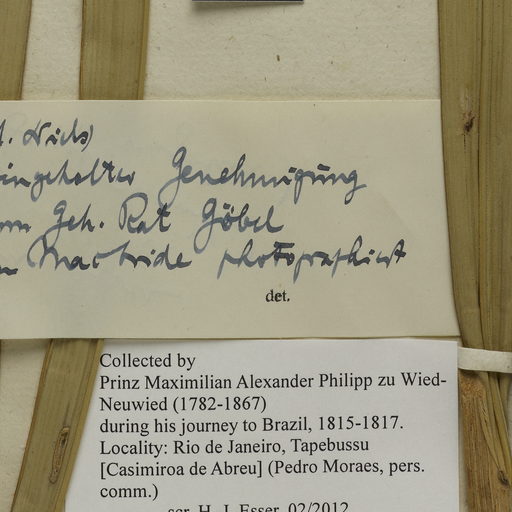 eingeholter Genehmigung
Geh. Rat Göbel
Macbride photographiert
det.
Collected by
Prinz Maximilian Alexander Philipp zu Wied-
Neuwied (1782-1867)
during his journey to Brazil, 1815-1817.
Locality: Rio de Janeiro, Tapebussu
[Casimiroa de Abreu] (Pedro Moraes, pers.
comm.)
scr. H.-J. Esser, 02/2012